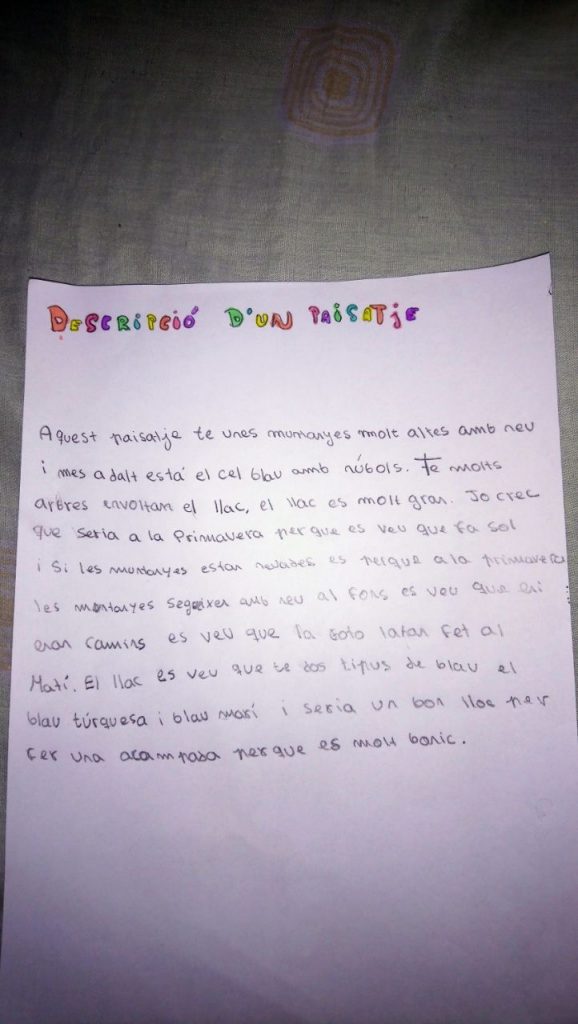 DESCRIPCIÓ D'UN PAISATJE
Aquest paisatje te unes muntanyes molt altes amb neu
i mes adalt está el cel blau amb núbols. Te molts
arbres envoltam el llac, el llac es molt gran. Jo crec
que seria a la Primavera per que es veu que fa sol
i si les muntanyes estan nevades es perque a la primavera
les montanyes segeixen amb neu al fons es veu que eri
eran camins es veu que la foto latan fet al
Matí. El llac es veu que te dos tipus de blau el
blau túrquesa i blau marí i seria un bon lloc per
fer una acampada per que es molt bonic.